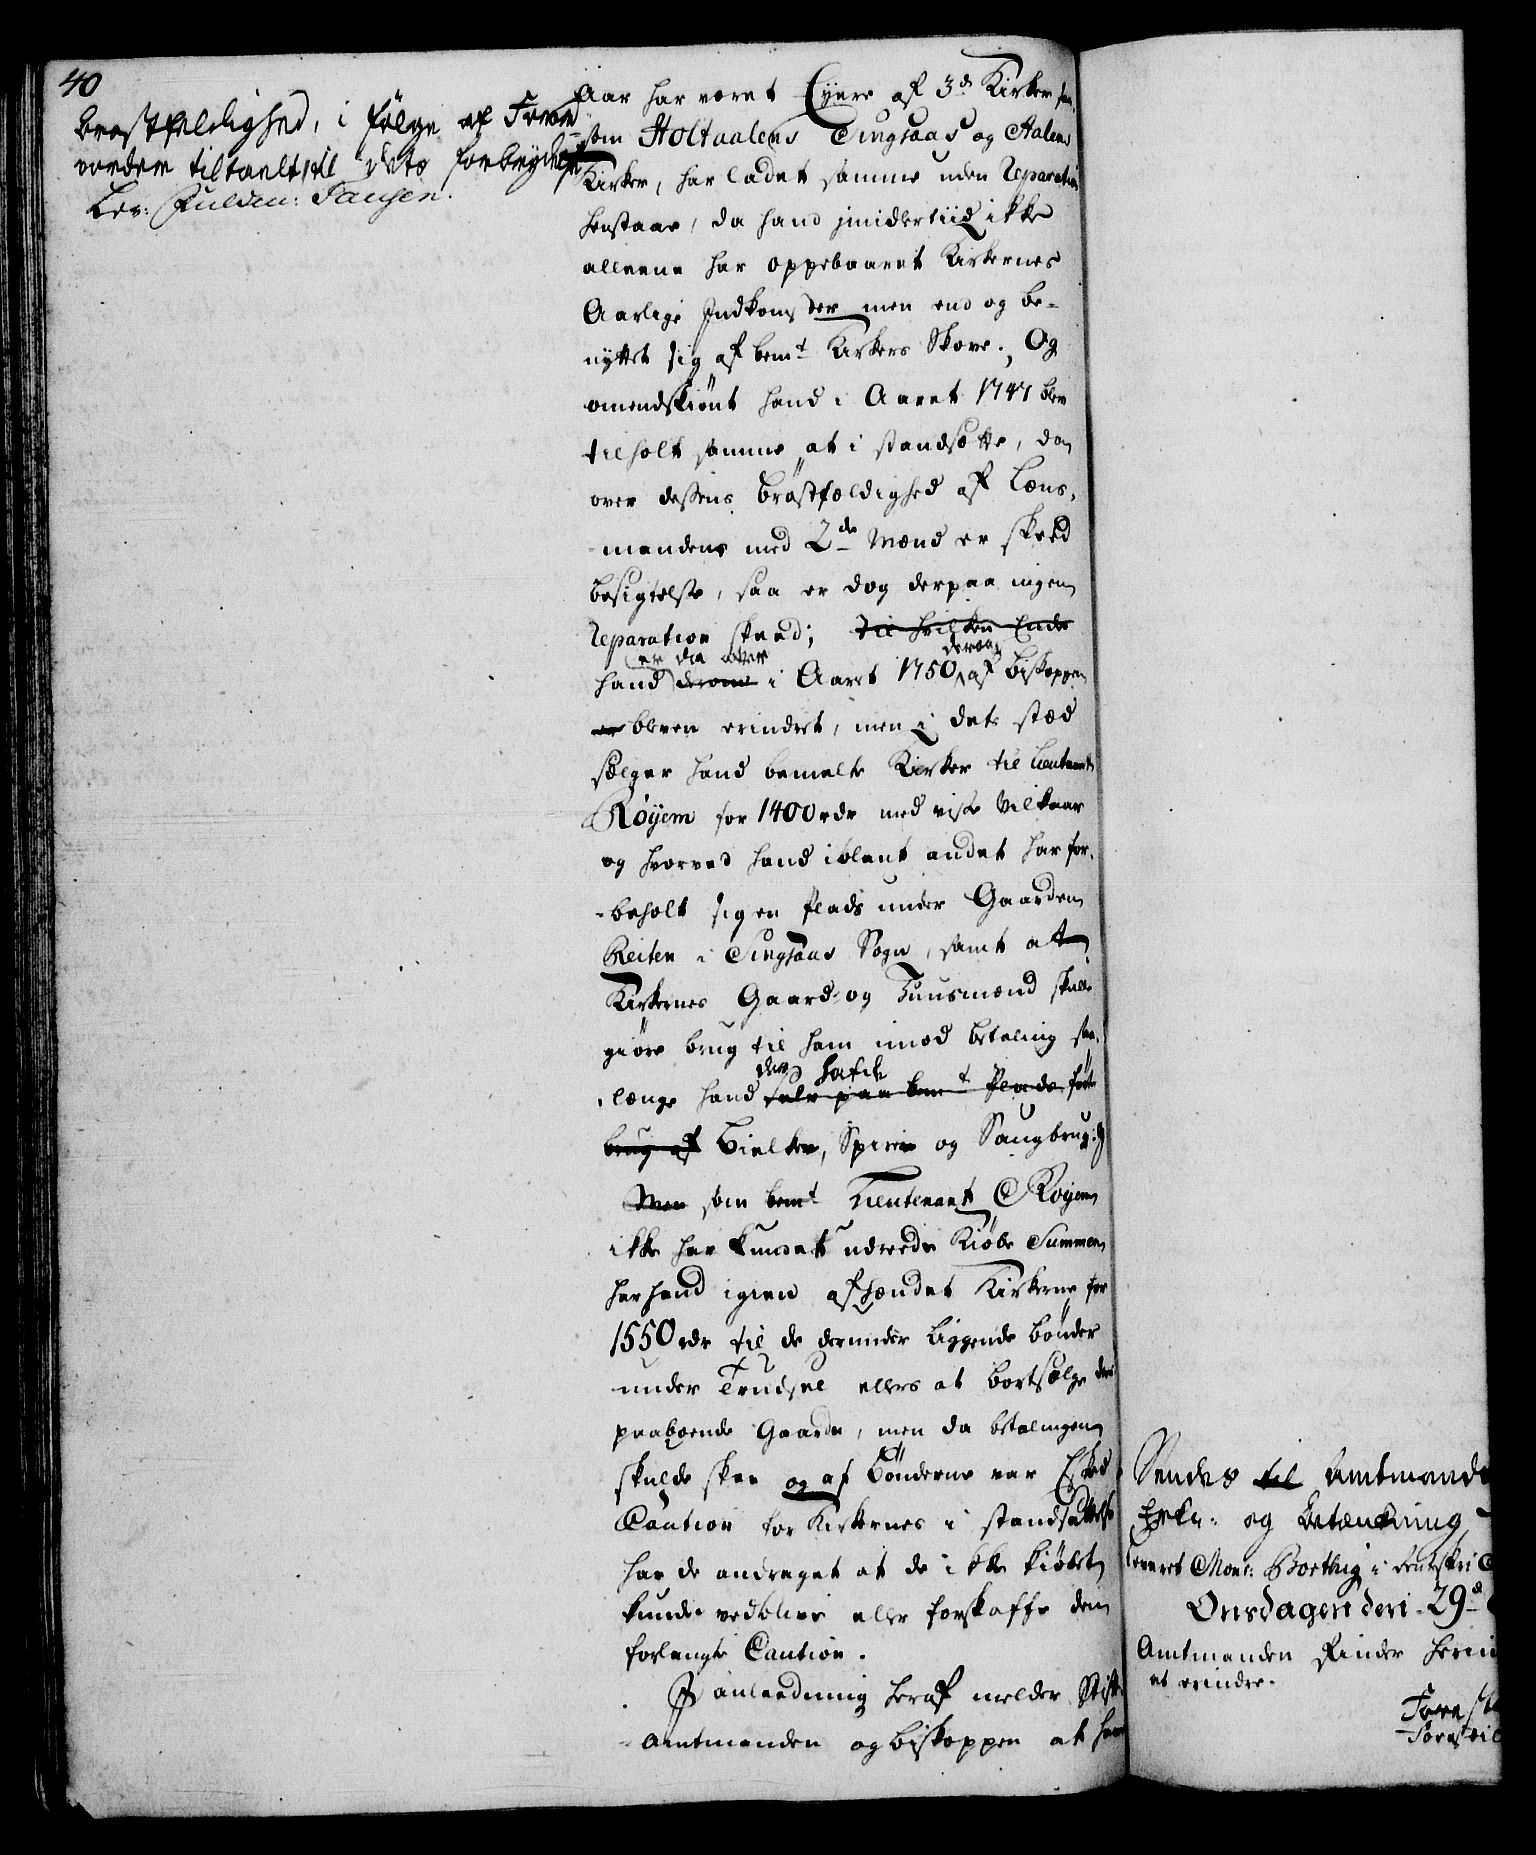 40
brøstfeldighed, i følge af Forord
vorder tiltalt til dets forbrydelse
Lev: Fuldm: Jansen.
Aar har været Eyere af 3de Kirker saa
som Holtaalens Singsaas og Aalens
Kirker, har ladet samme uden Reparation
henstaae, da hand imidlertiid ikke
alleene har oppebaaret Kirkernes
Aarlige Indkomster men end og be-
nyttet sig af bemt Kirkers Skove. Og
omendskiønt hand i Aaret 1747 blev
tilholt samme at i standsætte, da
over dessens brøstfældighed af Læns-
mandens med 2de Mænd er skeed
besigtelse, saa er dog derpaa ingen
Reparation skeed; til hvilken Ende
er da atter derom
hand derom i Aaret 1750 af biskoppen
er bleven erindret, men i dets stæd
sælger hand bemelte Kirker til Lieutenant
Røyem for 1400 rdr med visse Vilkaar
og hvorved hand iblant andet har for-
beholt sig en Plads under Gaarden
Reiten i Singsaas Sogn, samt at
Kirkernes Gaard- og Huusmænd skulle
giøre brug til ham imod betaling saa
der hafde
længe hand selv paa bemt Plads førte
brug af Bielker, Spirer og Saugbrug:
Men som bemt Lieutenant Røyem
ikke har kundet udreede Kiøbe Summen
har hand igien afhændet Kirkerne for
1550 rdr til de derunder liggende bønder
under Trudsel ellers at bortsælge deres
paaboende Gaarde, men da betalingen
skulde skee og af Bønderne var Esked
Caution for Kirkernes i standsættelse
har de andraget at de ikke kiøbet
kunde vedblive eller forskaffe den
forlangte Caution.
I anleedning heraf melder Stift-
amtmanden og biskoppen at have
Sendes til Amtmande
Erkl: og Betænkning
leveret Mons: Boethig i Rentskri
Onsdagen den 29d
Amtmanden finder herii
at erindre.